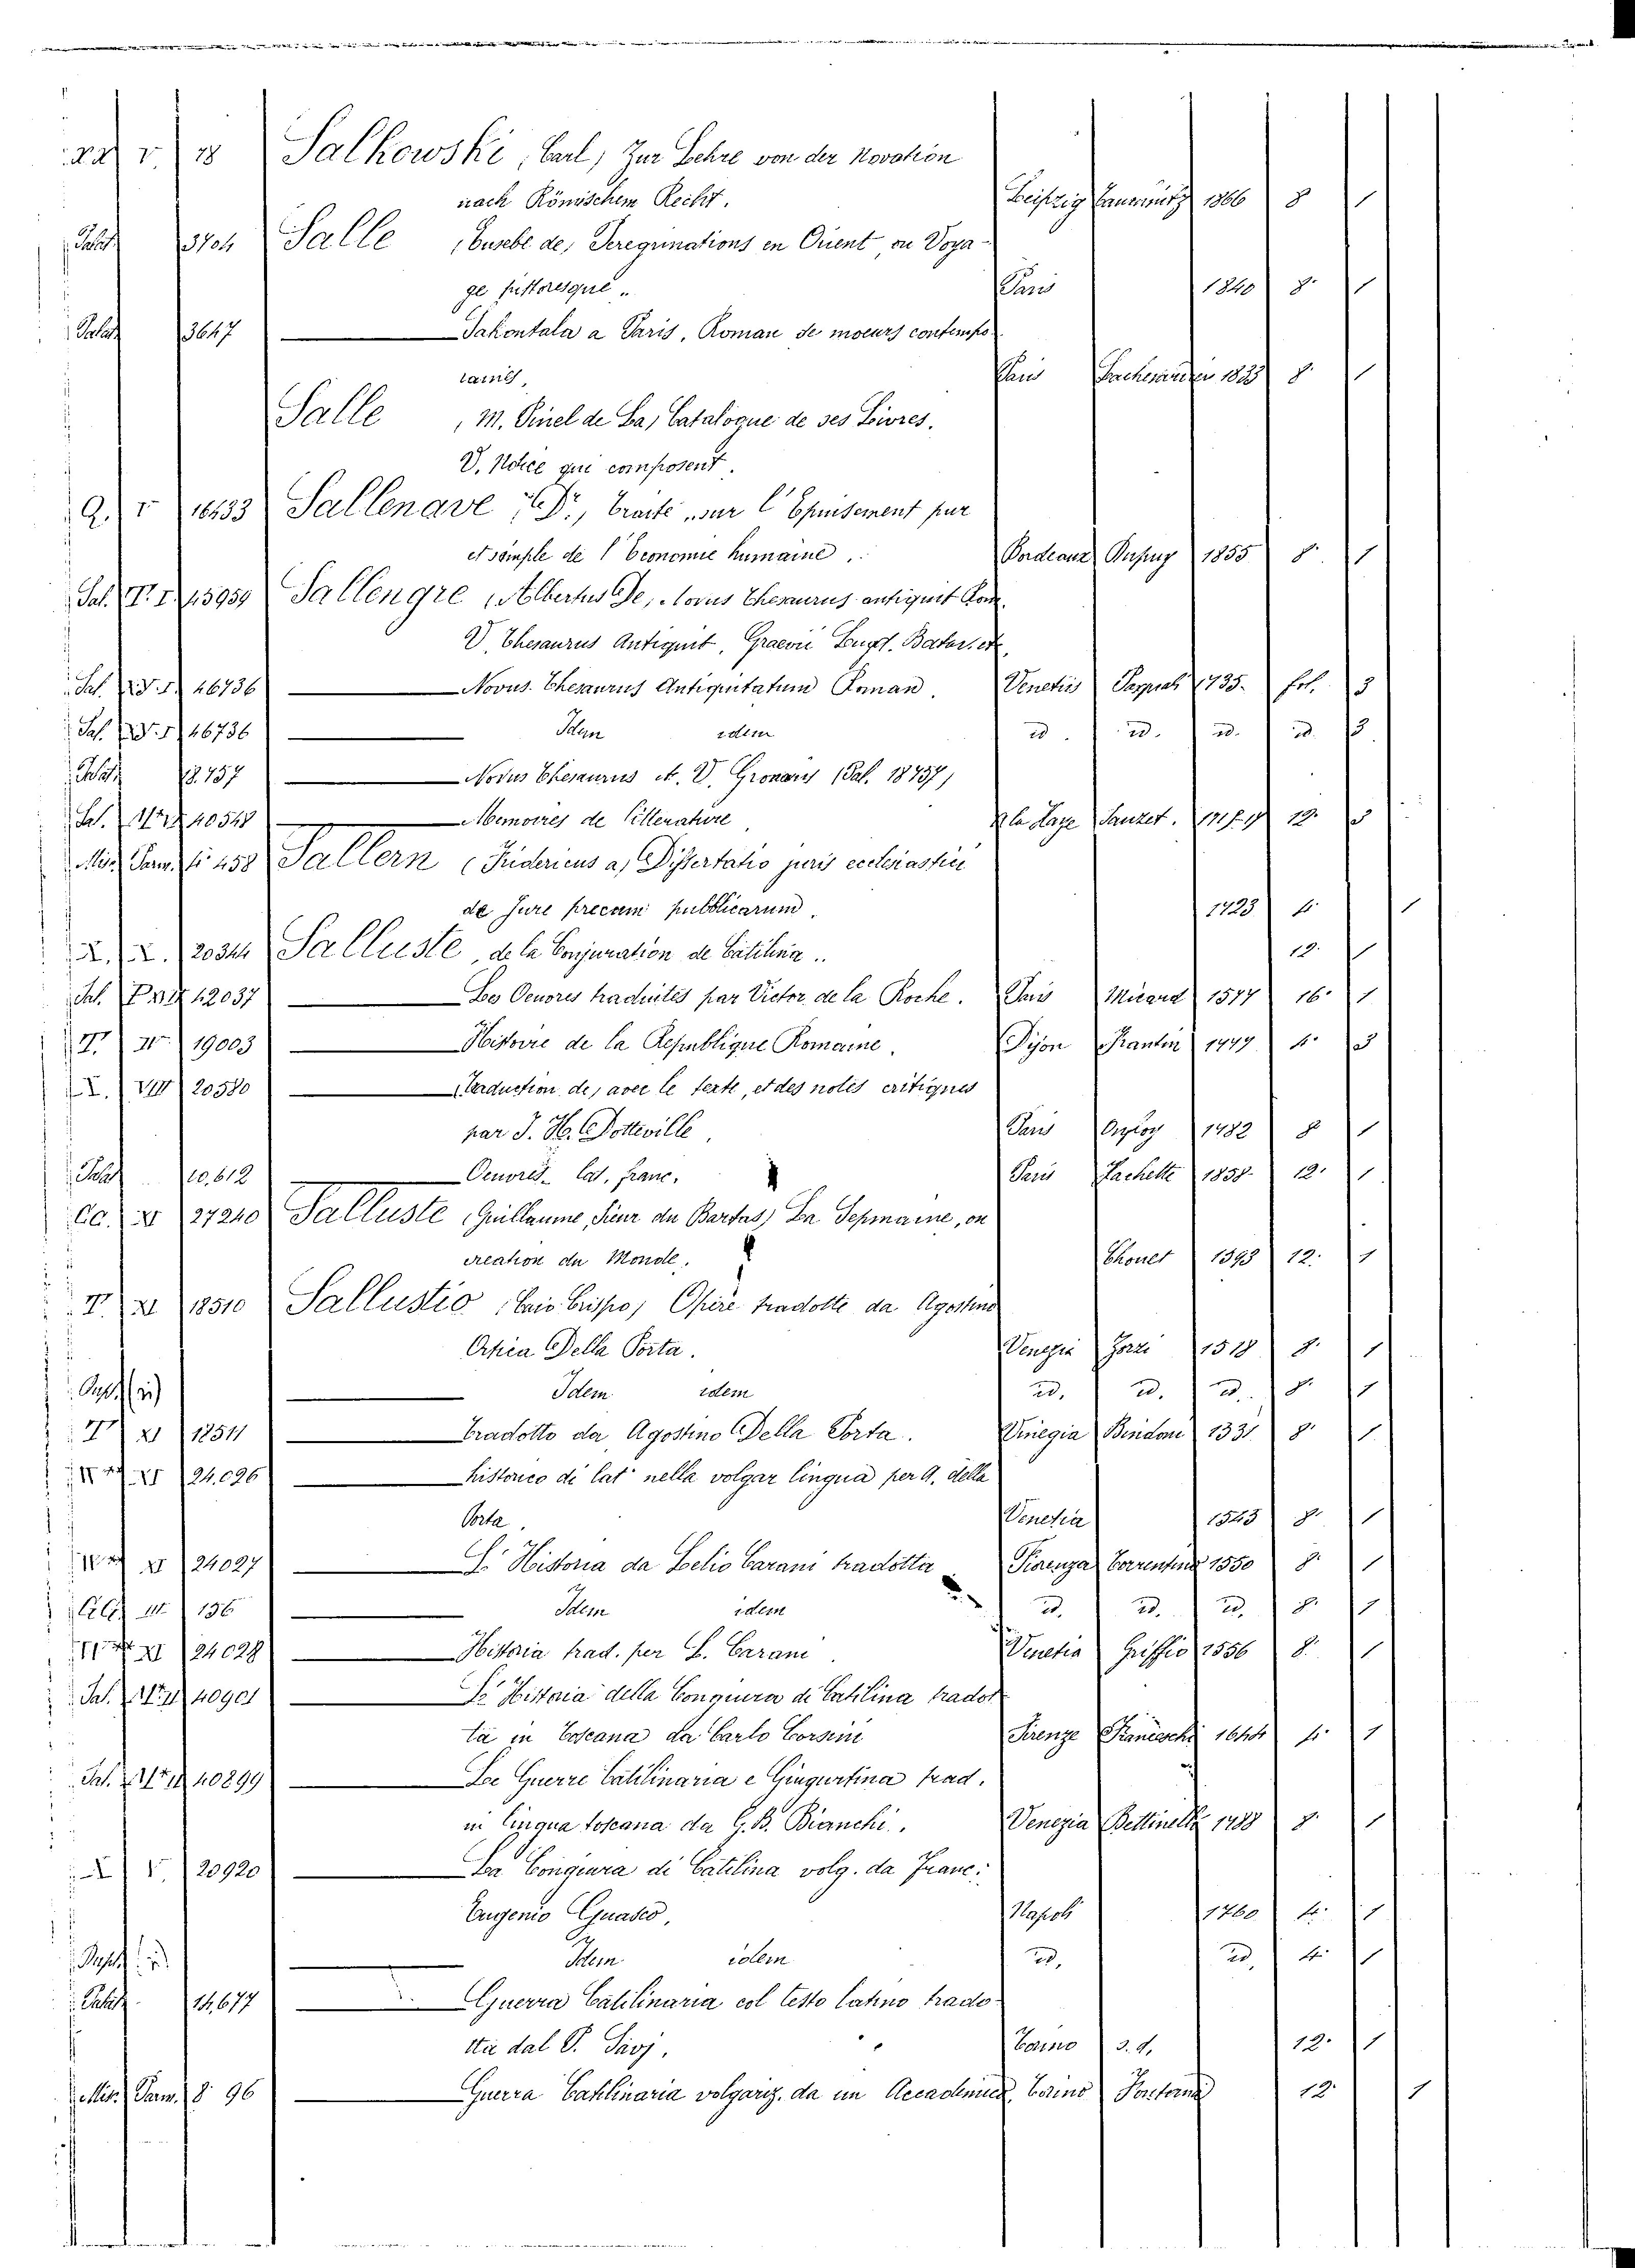 V. 18 Salkowski, Carl, Zur Lehre von der Novation
nach Römischem Recht. Leipzig 1866 8 1
Salle, Eusebe de, Peregrinations en Orient, ou Voya-
ge pittoresque. Paris 1840 8° 1
3647 Sakontala a Paris, Roman de moeurs contempo-
rains, Paris 1833 8° 1
Salle, M. Pinel de La, Catalogue de ses Livres.
V. Notice qui composent.
Q. V 16433 Sallenave, Dr., Traité sur l'Epuisement pur
et simple de l'Economie humaine. Bordeaux 1855 8° 1
Sal. 45959 Sallengre, Albertus De, Novus Thesaurus antiquit. Rom.
V. Thesaurus Antiquit. Graevii Lugd. Batav. etc.
Sal. 46736 Novus Thesaurus Antiquitatum Roman. Venetiis 1735. fol. 3
Sal. 46736 Idem idem id. id. id. id. 3
18.757 Novus Thesaurus etc. V. Gronovis (Sal. 18757)
Sal. 40548 Memoires de Litterature A la Haye Sauzet. 12°
458 Sallern, Fridericus a, Dissertatio juris ecclesiastici
de Jure precum pubblicarum. 1723 4° 1
X. X. 20344 Salluste, de la Conjuration de Catilina.. 12. 1
Sal. 42037 Les Oeuvres traduites par Victor de la Roche. Paris Micard 1577 16° 1
19003 Histoire de la Republique Romaine. Dijon Frantin 1777 4° 3
X. VIII 20580 (Traduction de, avec le texte, et des notes critiques
par J. H. Dotteville, Paris 1782 8 1
10,612 Oeuvres_ lat. franc. Paris Hachette 1858. 12. 1
CC. 27240 Salluste, Guillaume, Sieur du Bartas, La Sepmaine, ou
creation du Monde. Chouet 1593 12. 1
XI 18510 Sallustio, Caio Crispo, Opere tradotte da Agostino
Ortica Della Porta. Venezia Zorzi 1518 8. 1
Idem idem id. id. id. 8. 1
XI 18511 Tradotto da Agostino Della Porta. Vinegia Bindoni 1531 8° 1
24.026 historico di lat° nella volgar lingua per A. della
Porta. Venetia 1543 8° 1
24027 L' Historia da Lelio Carani tradotta. Fiorenza Torrentino 1550 8° 1
III 136 Idem idem id. id. id. 8° 1
XI 24028 Historia trad. per L. Carani. Venetia Griffio 1556 8° 1
Sal. 40901 L' Historia della Congiura di Catilina tradot-
ta in Toscana da Carlo Corsini Firenze 1644 4° 1
Sal. 40899 Le Guerre Catilinaria e Giugurtina trad.
in lingua toscana da G.B. Bianchi. Venezia Bettinelli 1788 8° 1
V. 20920 La Congiura di Catilina volg. da Franc.
Eugenio Guasco, Napoli 1760 4° 1
Idem idem id. id. 4° 1
14,677 Guerra Catilinaria col testo latino trado-
tta dal P. Savj. Torino s. d. 12° 1
Parm. 8° 96 Guerra Catilinaria volgariz. da un Accademico, Torino Fontana 12° 1